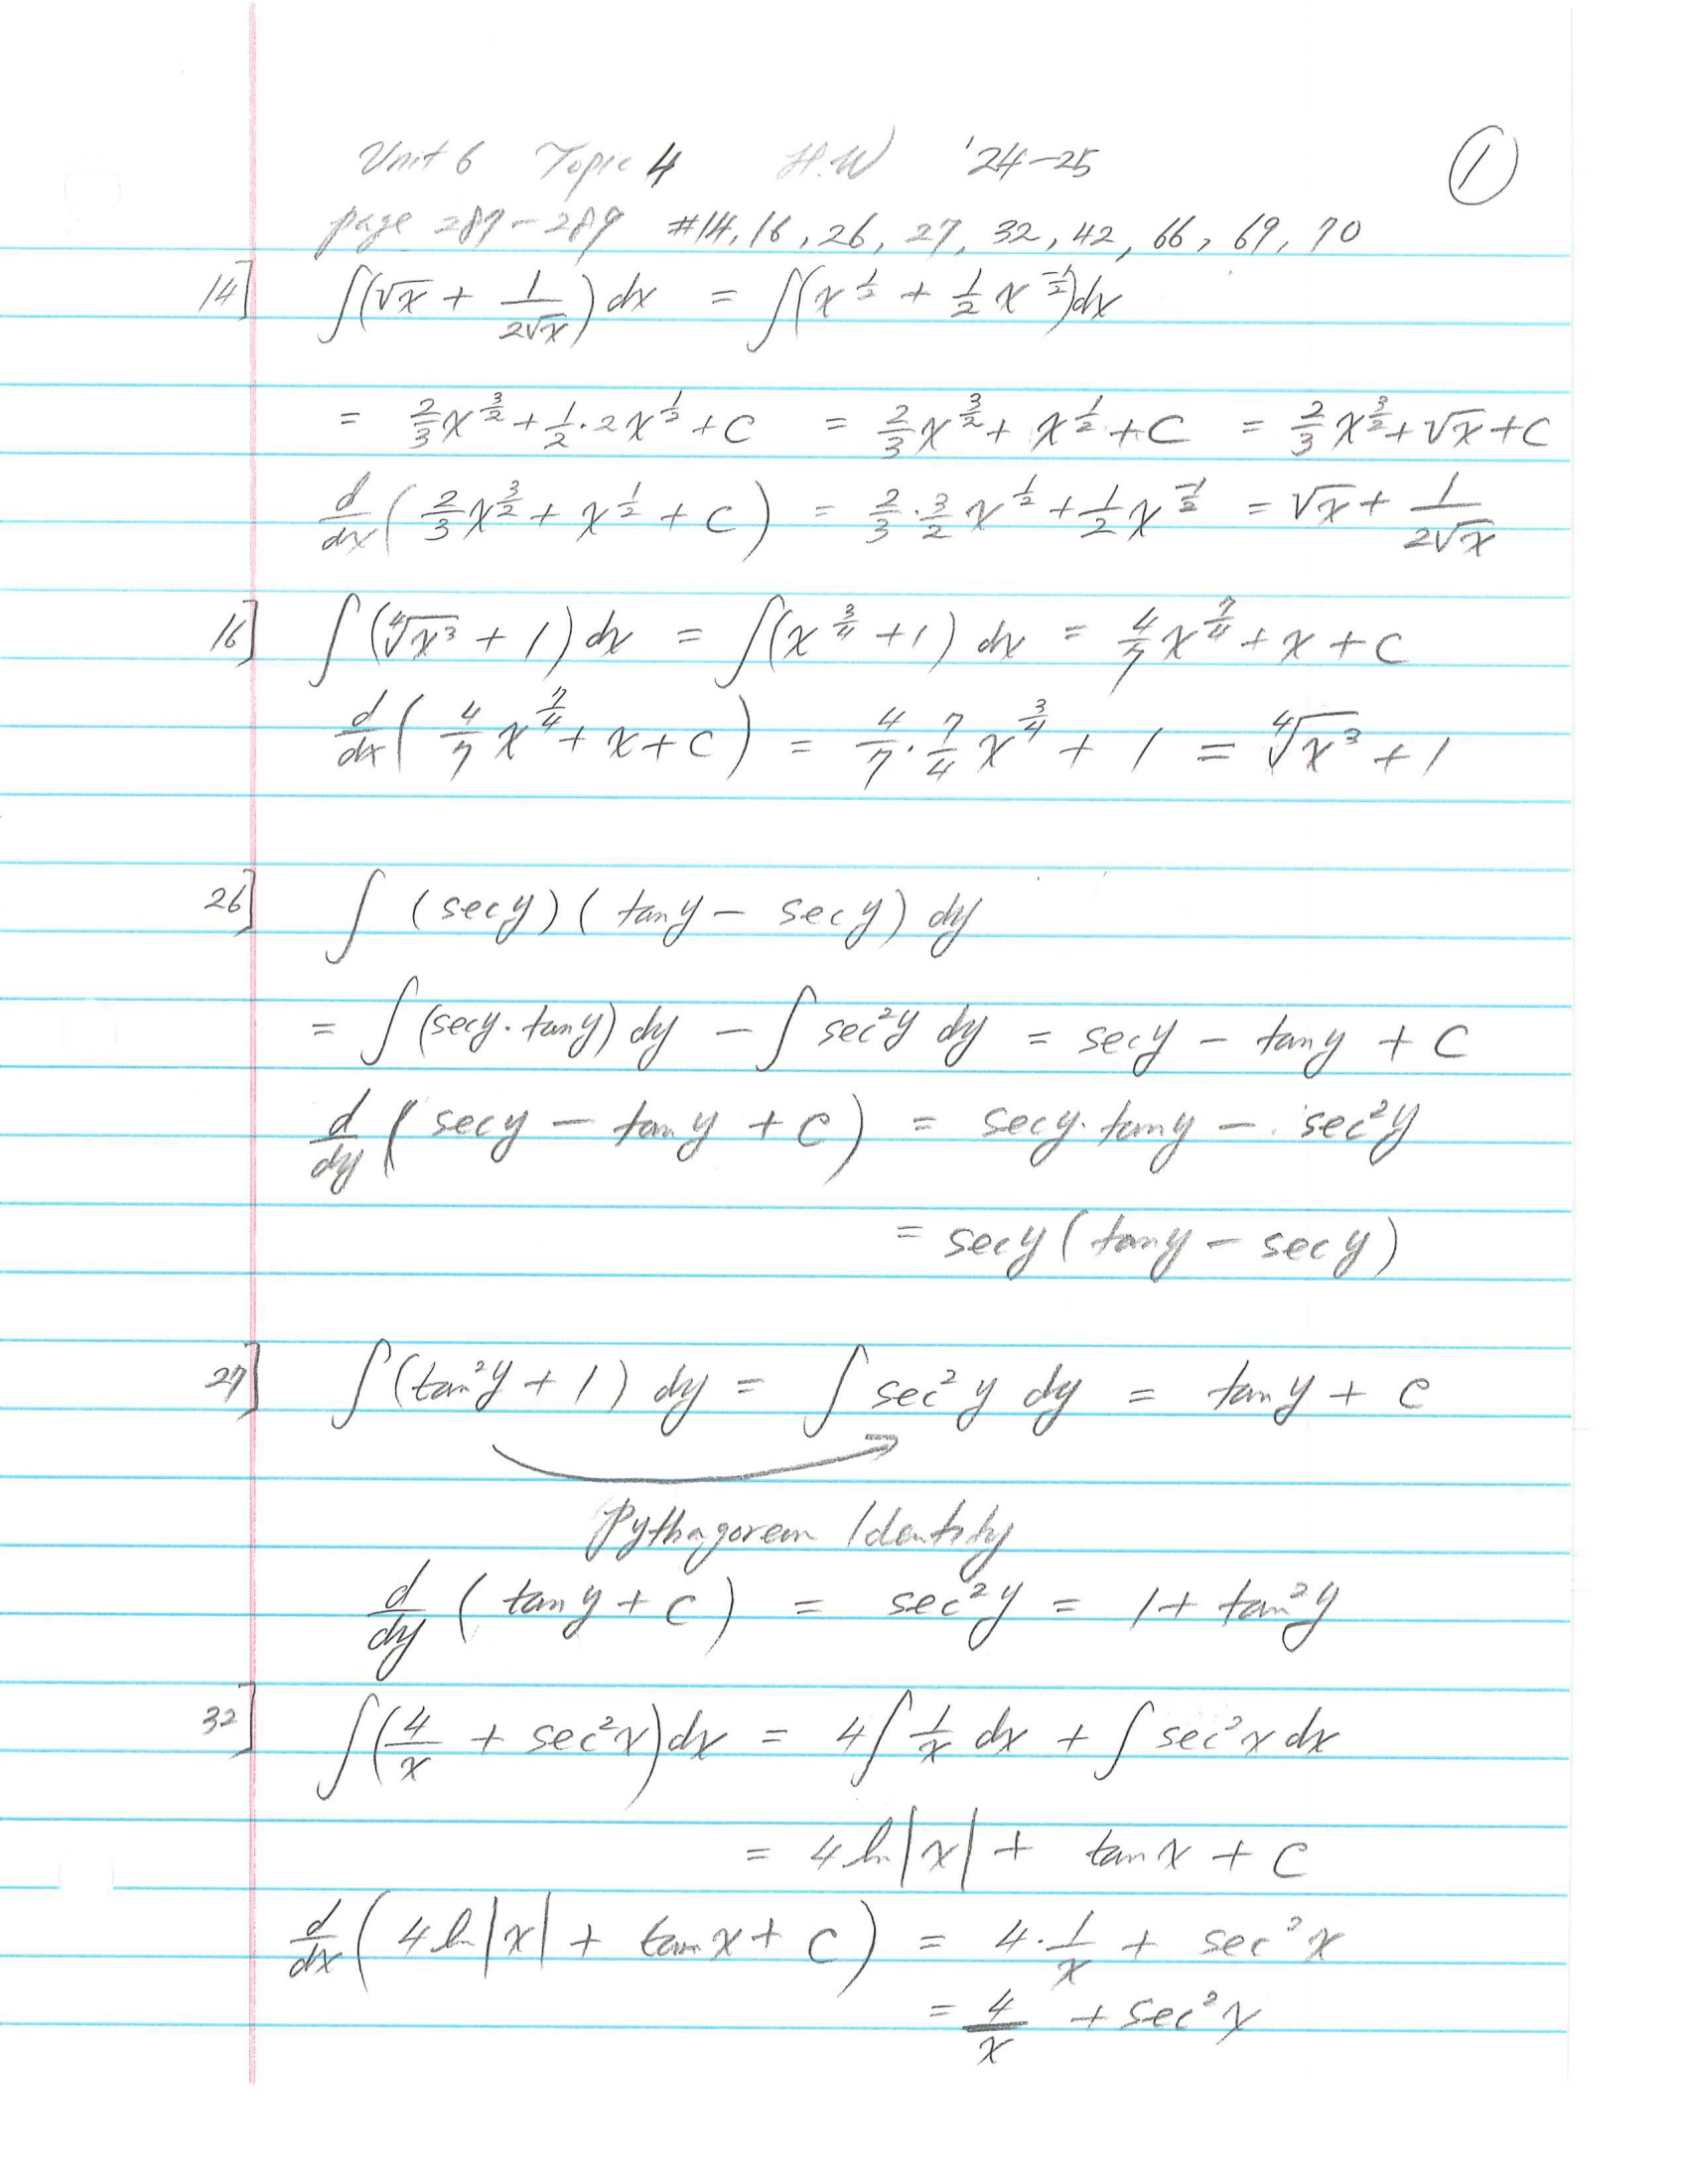 Unit 6 Topic 4 H.W '24-25 ①
page 287-289 #14, 16, 26, 27, 32, 42, 66, 69, 70
14] ∫(√x + 1/(2√x)) dx = ∫(x^(1/2) + 1/2 x^(-1/2))dx
= 2/3 x^(3/2) + 1/2 · 2x^(1/2) + C = 2/3 x^(3/2) + x^(1/2) + C = 2/3 x^(3/2) + √x + C
d/dx (2/3 x^(3/2) + x^(1/2) + C) = 2/3 · 3/2 x^(1/2) + 1/2 x^(-1/2) = √x + 1/(2√x)
16] ∫(⁴√x³ + 1) dx = ∫(x^(3/4) + 1) dx = 4/7 x^(7/4) + x + C
d/dx (4/7 x^(7/4) + x + C) = 4/7 · 7/4 x^(3/4) + 1 = ⁴√x³ + 1
26] ∫ (sec y)(tan y - sec y) dy
= ∫(sec y · tan y) dy - ∫ sec²y dy = sec y - tan y + C
d/dy (sec y - tan y + C) = sec y · tan y - sec²y
= sec y (tan y - sec y)
27] ∫(tan²y + 1) dy = ∫ sec²y dy = tan y + C
Pythagorean Identity
d/dy (tan y + C) = sec²y = 1 + tan²y
32] ∫(4/x + sec²x)dx = 4∫ 1/x dx + ∫ sec²x dx
= 4 ln|x| + tan x + C
d/dx (4 ln|x| + tan x + C) = 4 · 1/x + sec²x
= 4/x + sec²x